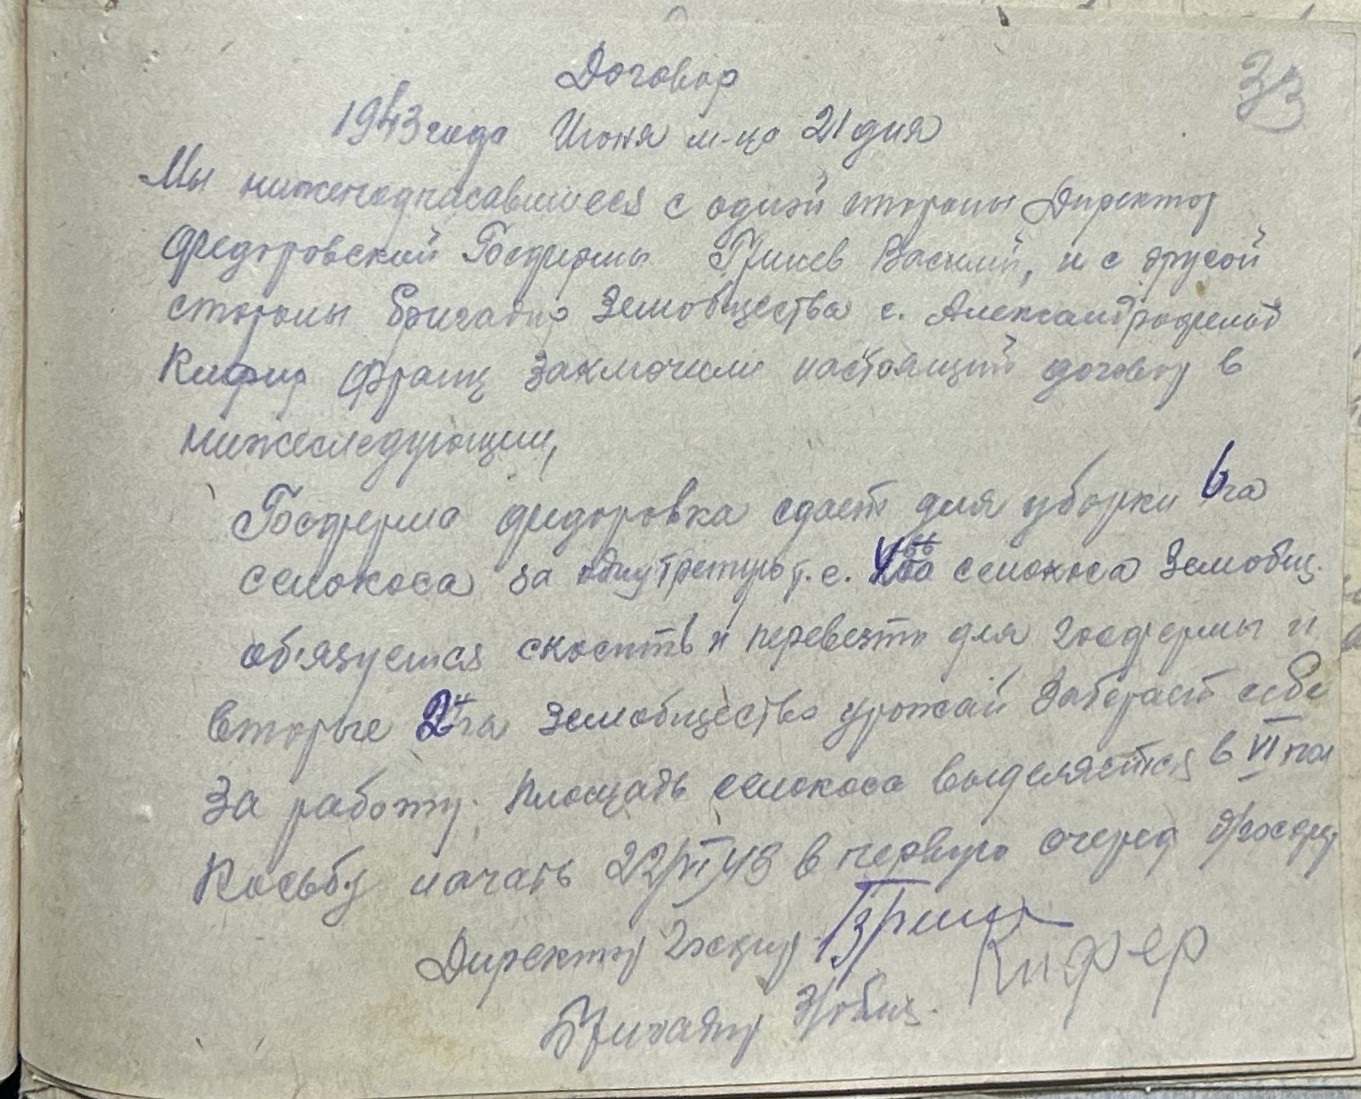 33
Договор
1943 года Июня м-ца 21 дня
Мы нижеподписавшиеся с одной стороны Директор
Федоровский Госфермы Василий, и с другой
стороны бригадир Земобщества с.
Кифер Франц заключили настоящий договор в
нижеследующем,
Госферма Федоровка сдает для уборки 6 га
сенокоса за одну третую т.е. сенокоса Земобщ.
об'язуется скосить и перевезти для госфермы и
вторые 2 га Земобщество урожай заберает себе
за работу. Площадь сенокоса выделяется в VI
Косьбу начать 22/VI 43 в первую очеред
Директор
Бригадир Кифер